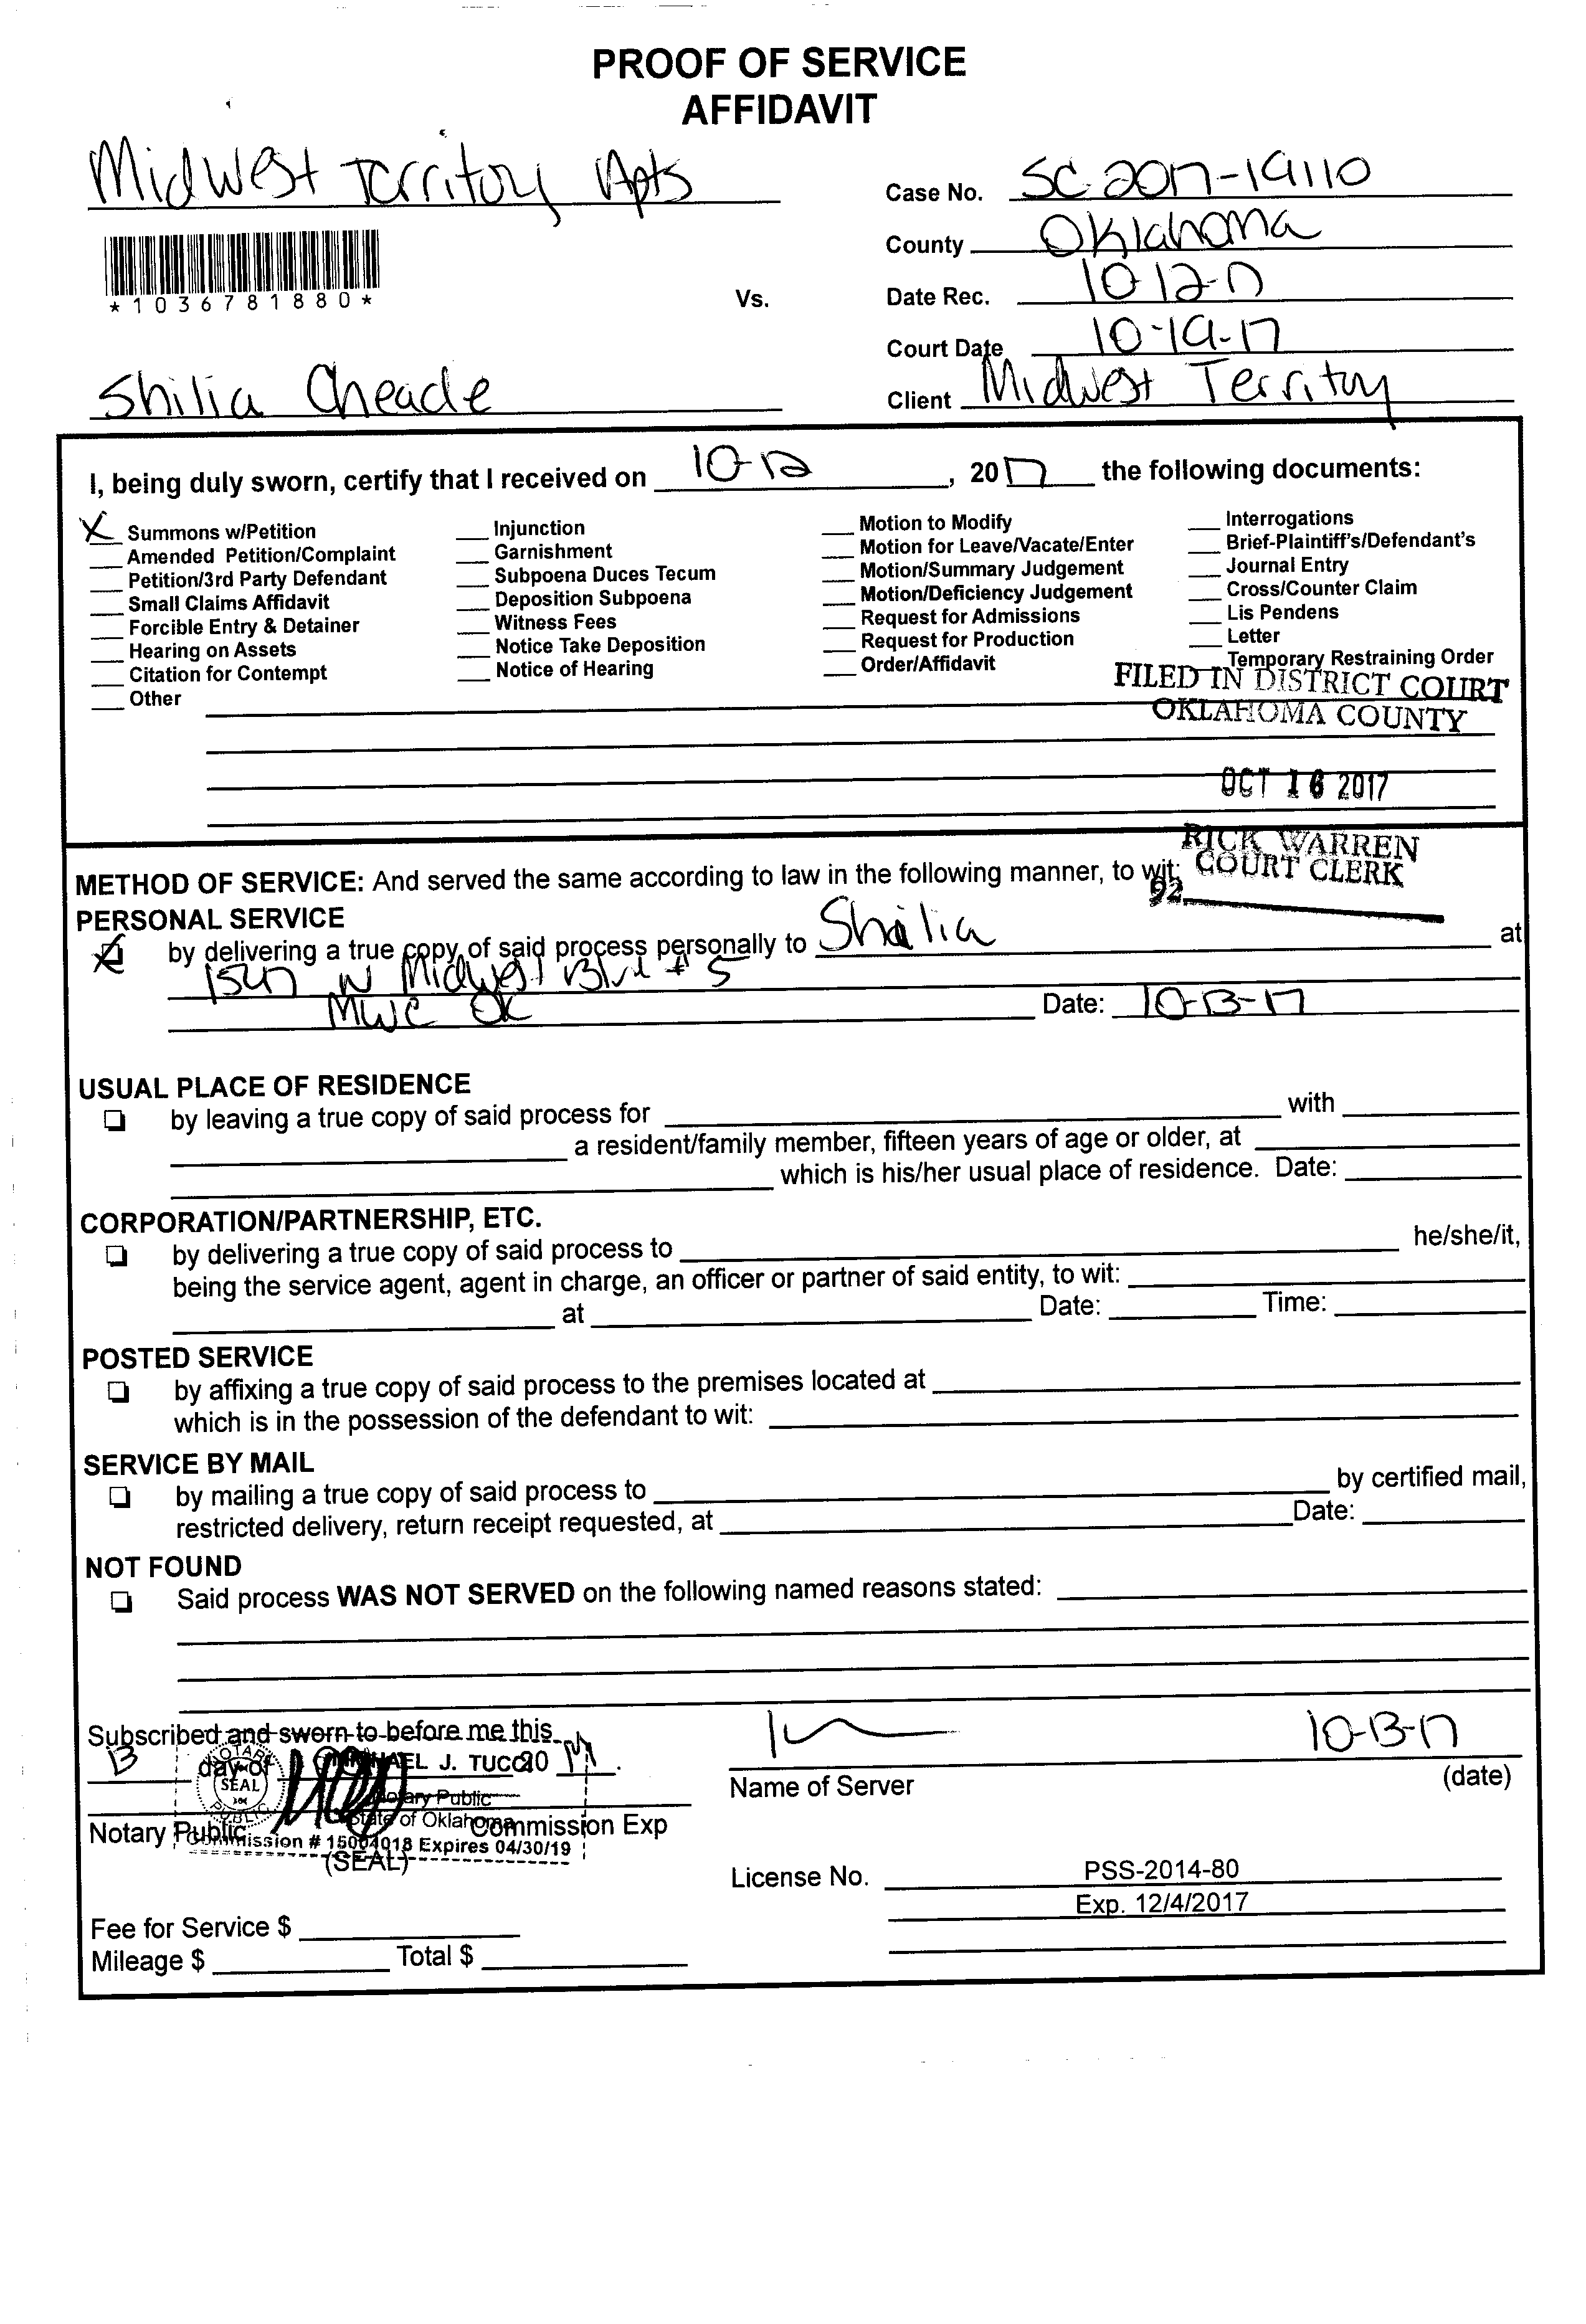 PROOF OF SERVICE
AFFIDAVIT
Midwest Territory Apts
Case No. SC 2017-19110
County Oklahoma
*1036781880*
Vs.
Date Rec. 10-12-17
Court Date 10-19-17
Shilia Cheadle
Client Midwest Territory
I, being duly sworn, certify that I received on 10-12, 2017 the following documents:
X Summons w/Petition
Amended Petition/Complaint
Petition/3rd Party Defendant
Small Claims Affidavit
Forcible Entry & Detainer
Hearing on Assets
Citation for Contempt
Other
Injunction
Garnishment
Subpoena Duces Tecum
Deposition Subpoena
Witness Fees
Notice Take Deposition
Notice of Hearing
Motion to Modify
Motion for Leave/Vacate/Enter
Motion/Summary Judgement
Motion/Deficiency Judgement
Request for Admissions
Request for Production
Order/Affidavit
Interrogations
Brief-Plaintiff's/Defendant's
Journal Entry
Cross/Counter Claim
Lis Pendens
Letter
Temporary Restraining Order
FILED IN DISTRICT COURT
OKLAHOMA COUNTY
OCT 16 2017
RICK WARREN
COURT CLERK
92
METHOD OF SERVICE: And served the same according to law in the following manner, to wit:
PERSONAL SERVICE
by delivering a true copy of said process personally to Shilia at
1547 N Midwest Blvd # 5
MWC OK Date: 10-13-17
USUAL PLACE OF RESIDENCE
by leaving a true copy of said process for with
a resident/family member, fifteen years of age or older, at
which is his/her usual place of residence. Date:
CORPORATION/PARTNERSHIP, ETC.
by delivering a true copy of said process to he/she/it,
being the service agent, agent in charge, an officer or partner of said entity, to wit:
at Date: Time:
POSTED SERVICE
by affixing a true copy of said process to the premises located at
which is in the possession of the defendant to wit:
SERVICE BY MAIL
by mailing a true copy of said process to by certified mail,
restricted delivery, return receipt requested, at Date:
NOT FOUND
Said process WAS NOT SERVED on the following named reasons stated:
Subscribed and sworn to before me this
13 day of 20 17.
MICHAEL J. TUCCI
NOTARY PUBLIC SEAL
Notary Public
State of Oklahoma
Commission # 15004018 Expires 04/30/19
Notary Public Commission Exp
(SEAL)
10-13-17
Name of Server (date)
License No. PSS-2014-80
Exp. 12/4/2017
Fee for Service $
Mileage $ Total $